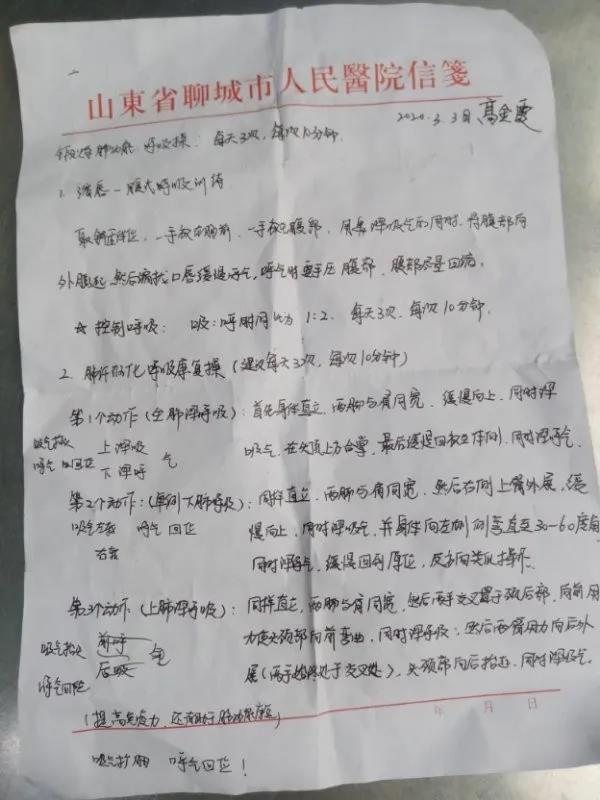 山東省聊城市人民醫院信箋
2020.3.3日 高金霞
锻炼肺功能 呼吸操:每天3次,每次10分钟.
1. 缩唇—腹式呼吸训练
取 位,一手放在胸前,一手放在腹部,用鼻深吸气的同时,将腹部向
外膨起,然后缩拢口唇缓慢呼气,呼气时要手压腹部,腹部尽量回缩。
☆ 控制呼吸: 吸:呼时间比为 1:2. 每天3次,每次10分钟.
2. 肺纤维化呼吸康复操(建议每天3次,每次10分钟)
第1个动作(全肺深呼吸):首先身体直立,两脚与肩同宽,缓慢向上,同时深
吸气,在头顶上方合掌,最后缓慢回放立体侧,同时深呼气.
吸气抬头
呼气回位
上深吸
下深呼
气
第2个动作:(单侧下肺呼吸):同样直立,两脚与肩同宽,然后右侧上臂外展,缓
慢向上,同时深吸气,并身体向左侧侧弯直至30-60度角
同时深呼气,缓慢回到原位,反方向类似操作.
吸气左弯 呼气回位
右弯
第3个动作(上肺深呼吸):同样直立,两脚与肩同宽,然后两手交叉置于颈后部,向前用
力使头颈部向前弯曲,同时深呼吸;然后两臂用力向后外
展(两手始终处于交叉处),头颈部向后抬起,同时深吸气.
吸气抬头
呼气回位
前呼
后吸
气
(提高免疫力,还有助于肺功能康复)
年 月 日
吸气扩胸 呼气回位!